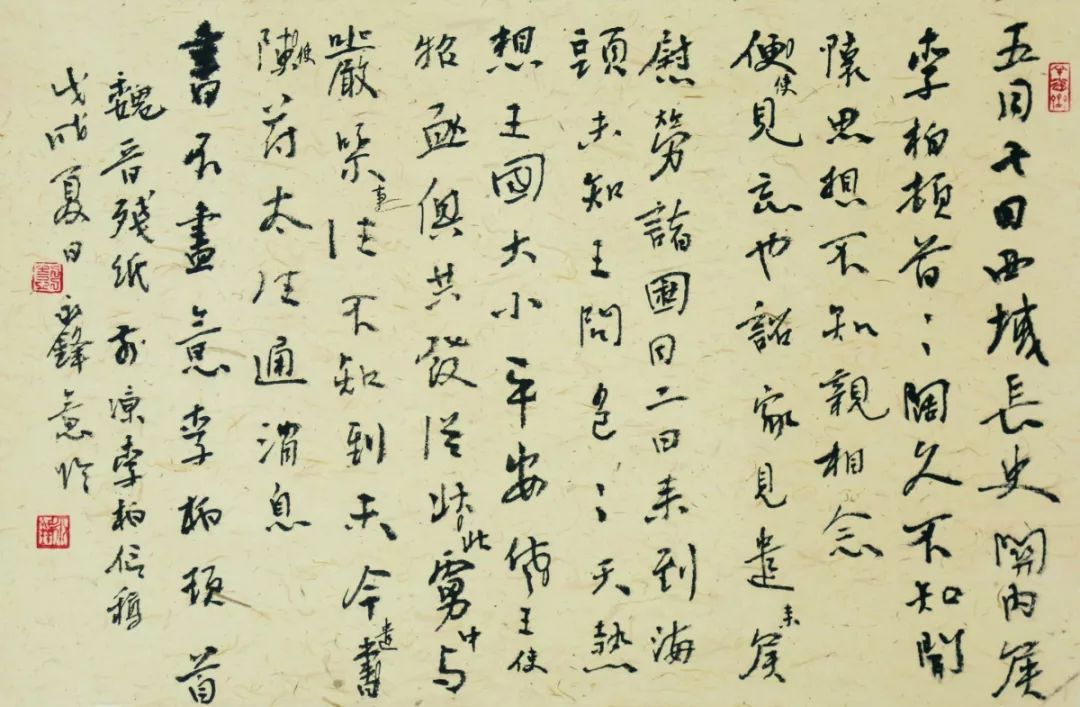 五月七日西域長史關內侯
李柏頓首〻闊久不知聞
懷思想不知親相念
便使見忘也詔家見遣来侯
慰勞諸國月二日来到海
頭未知王問邑〻天熱
想王國大小平安 王使
俱共發從北虜中与
嚴事往不知到未今遣書
使苻太往通消息
書不盡意李柏頓首
魏晉殘紙前涼李柏信稿
戊戌夏日永鋒意臨